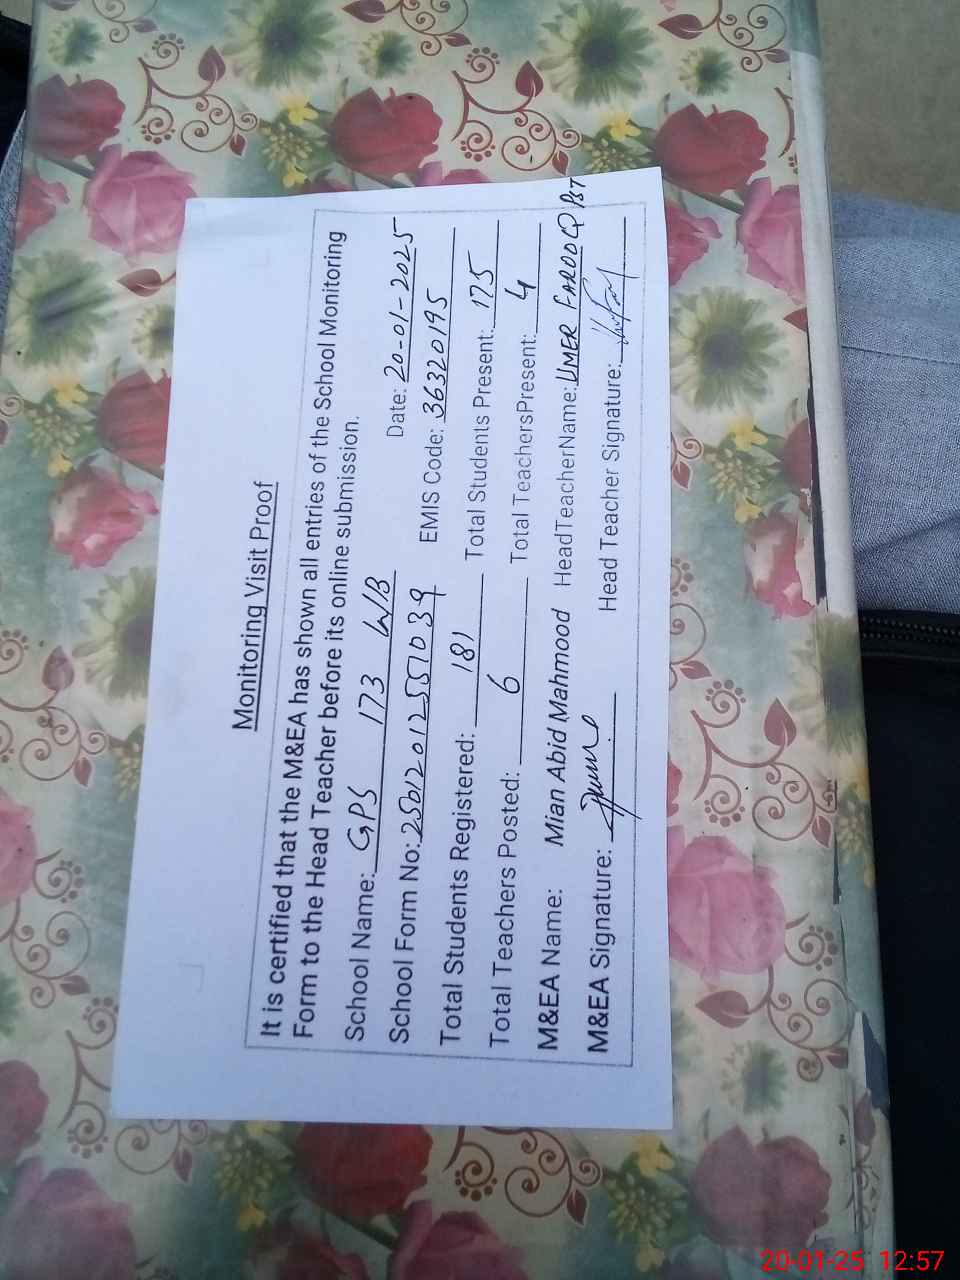 Monitoring Visit Proof
It is certified that the M&EA has shown all entries of the School Monitoring
Form to the Head Teacher before its online submission.
School Name: GPS 173 W/B Date: 20-01-2025
School Form No: 25012012551039 EMIS Code: 36320195
Total Students Registered: 181 Total Students Present: 175
Total Teachers Posted: 6 Total TeachersPresent: 4
M&EA Name: Mian Abid Mahmood HeadTeacherName: UMER FAROOQ PST
M&EA Signature: Head Teacher Signature:
20-01-25 12:57